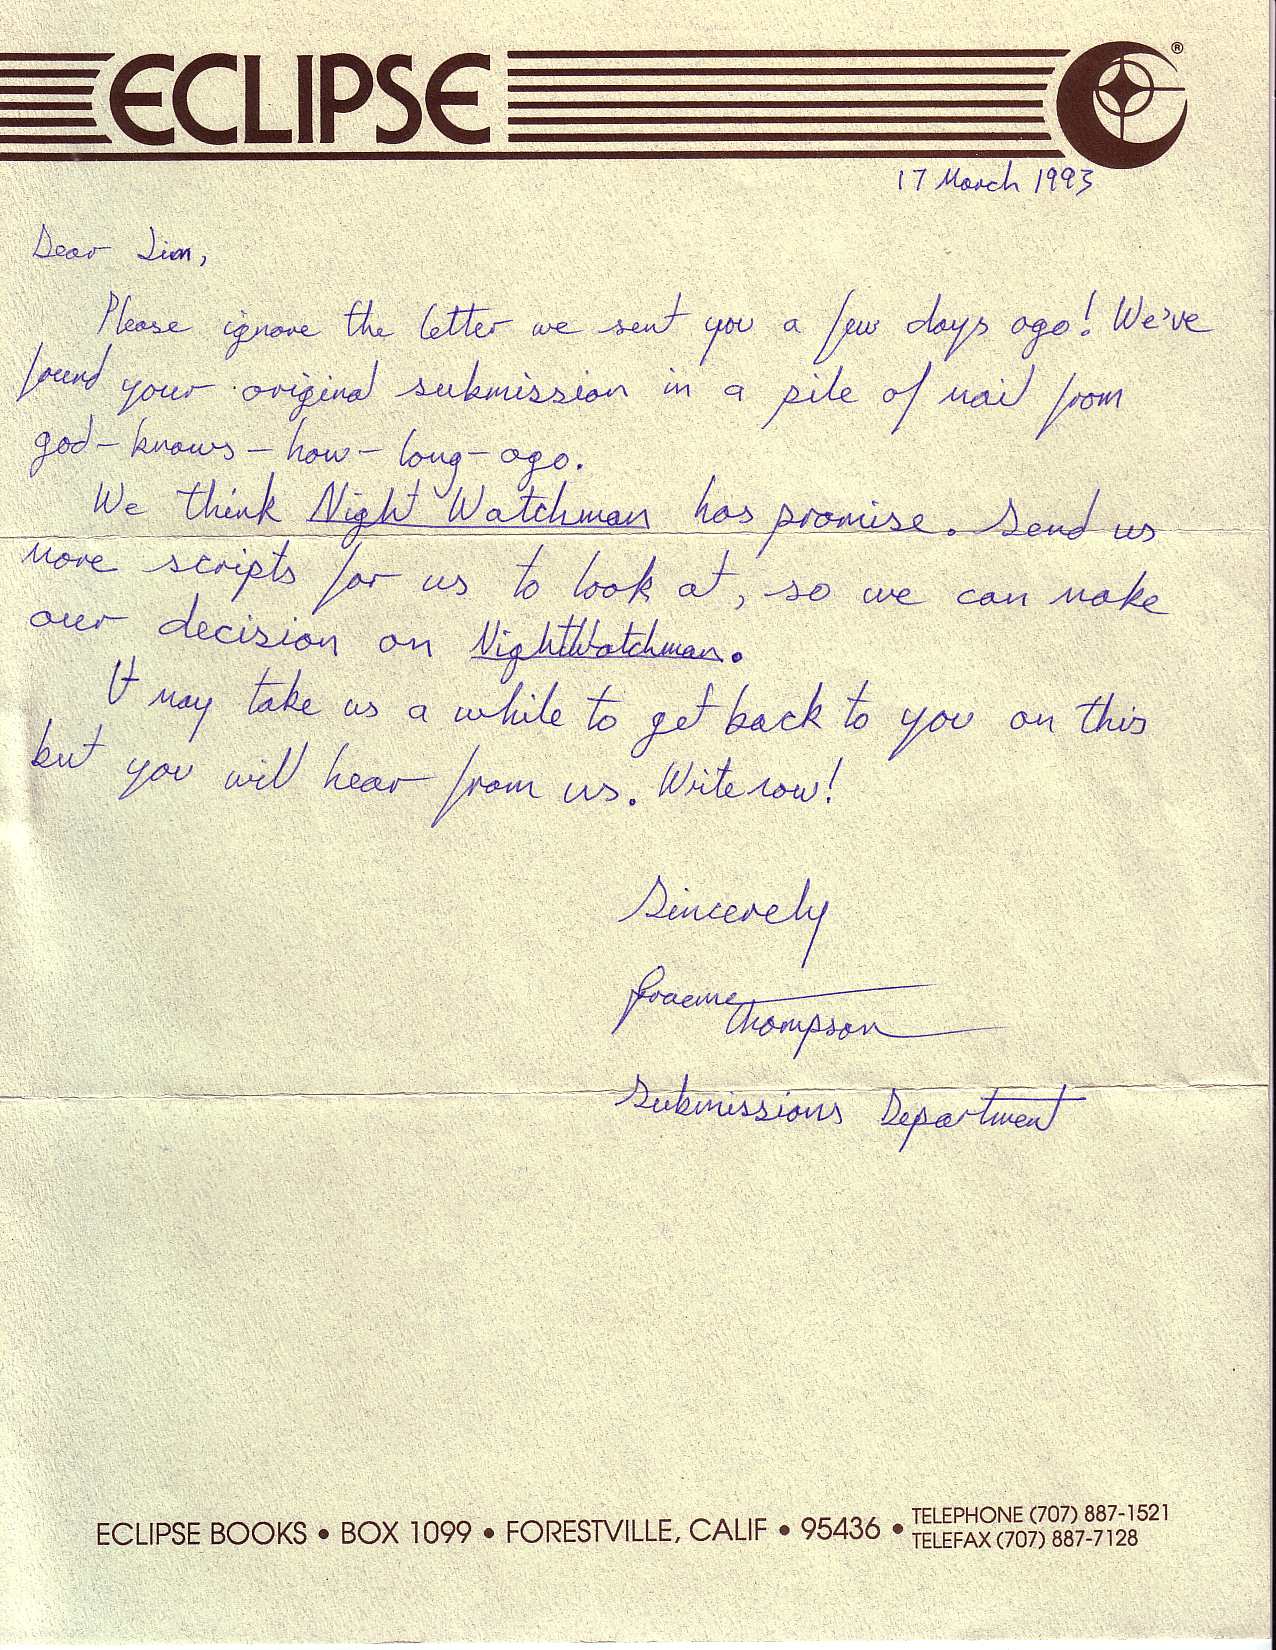 ECLIPSE ®
17 March 1993
Dear Jim,
Please ignore the letter we sent you a few days ago! We've
found your original submission in a pile of mail from
god-knows-how-long-ago.
We think Night Watchman has promise. Send us
more scripts for us to look at, so we can make
our decision on NightWatchman.
It may take us a while to get back to you on this
but you will hear from us. Write now!
Sincerely
Graeme
Thompson
Submissions Department
ECLIPSE BOOKS • BOX 1099 • FORESTVILLE, CALIF • 95436 • TELEPHONE (707) 887-1521
TELEFAX (707) 887-7128